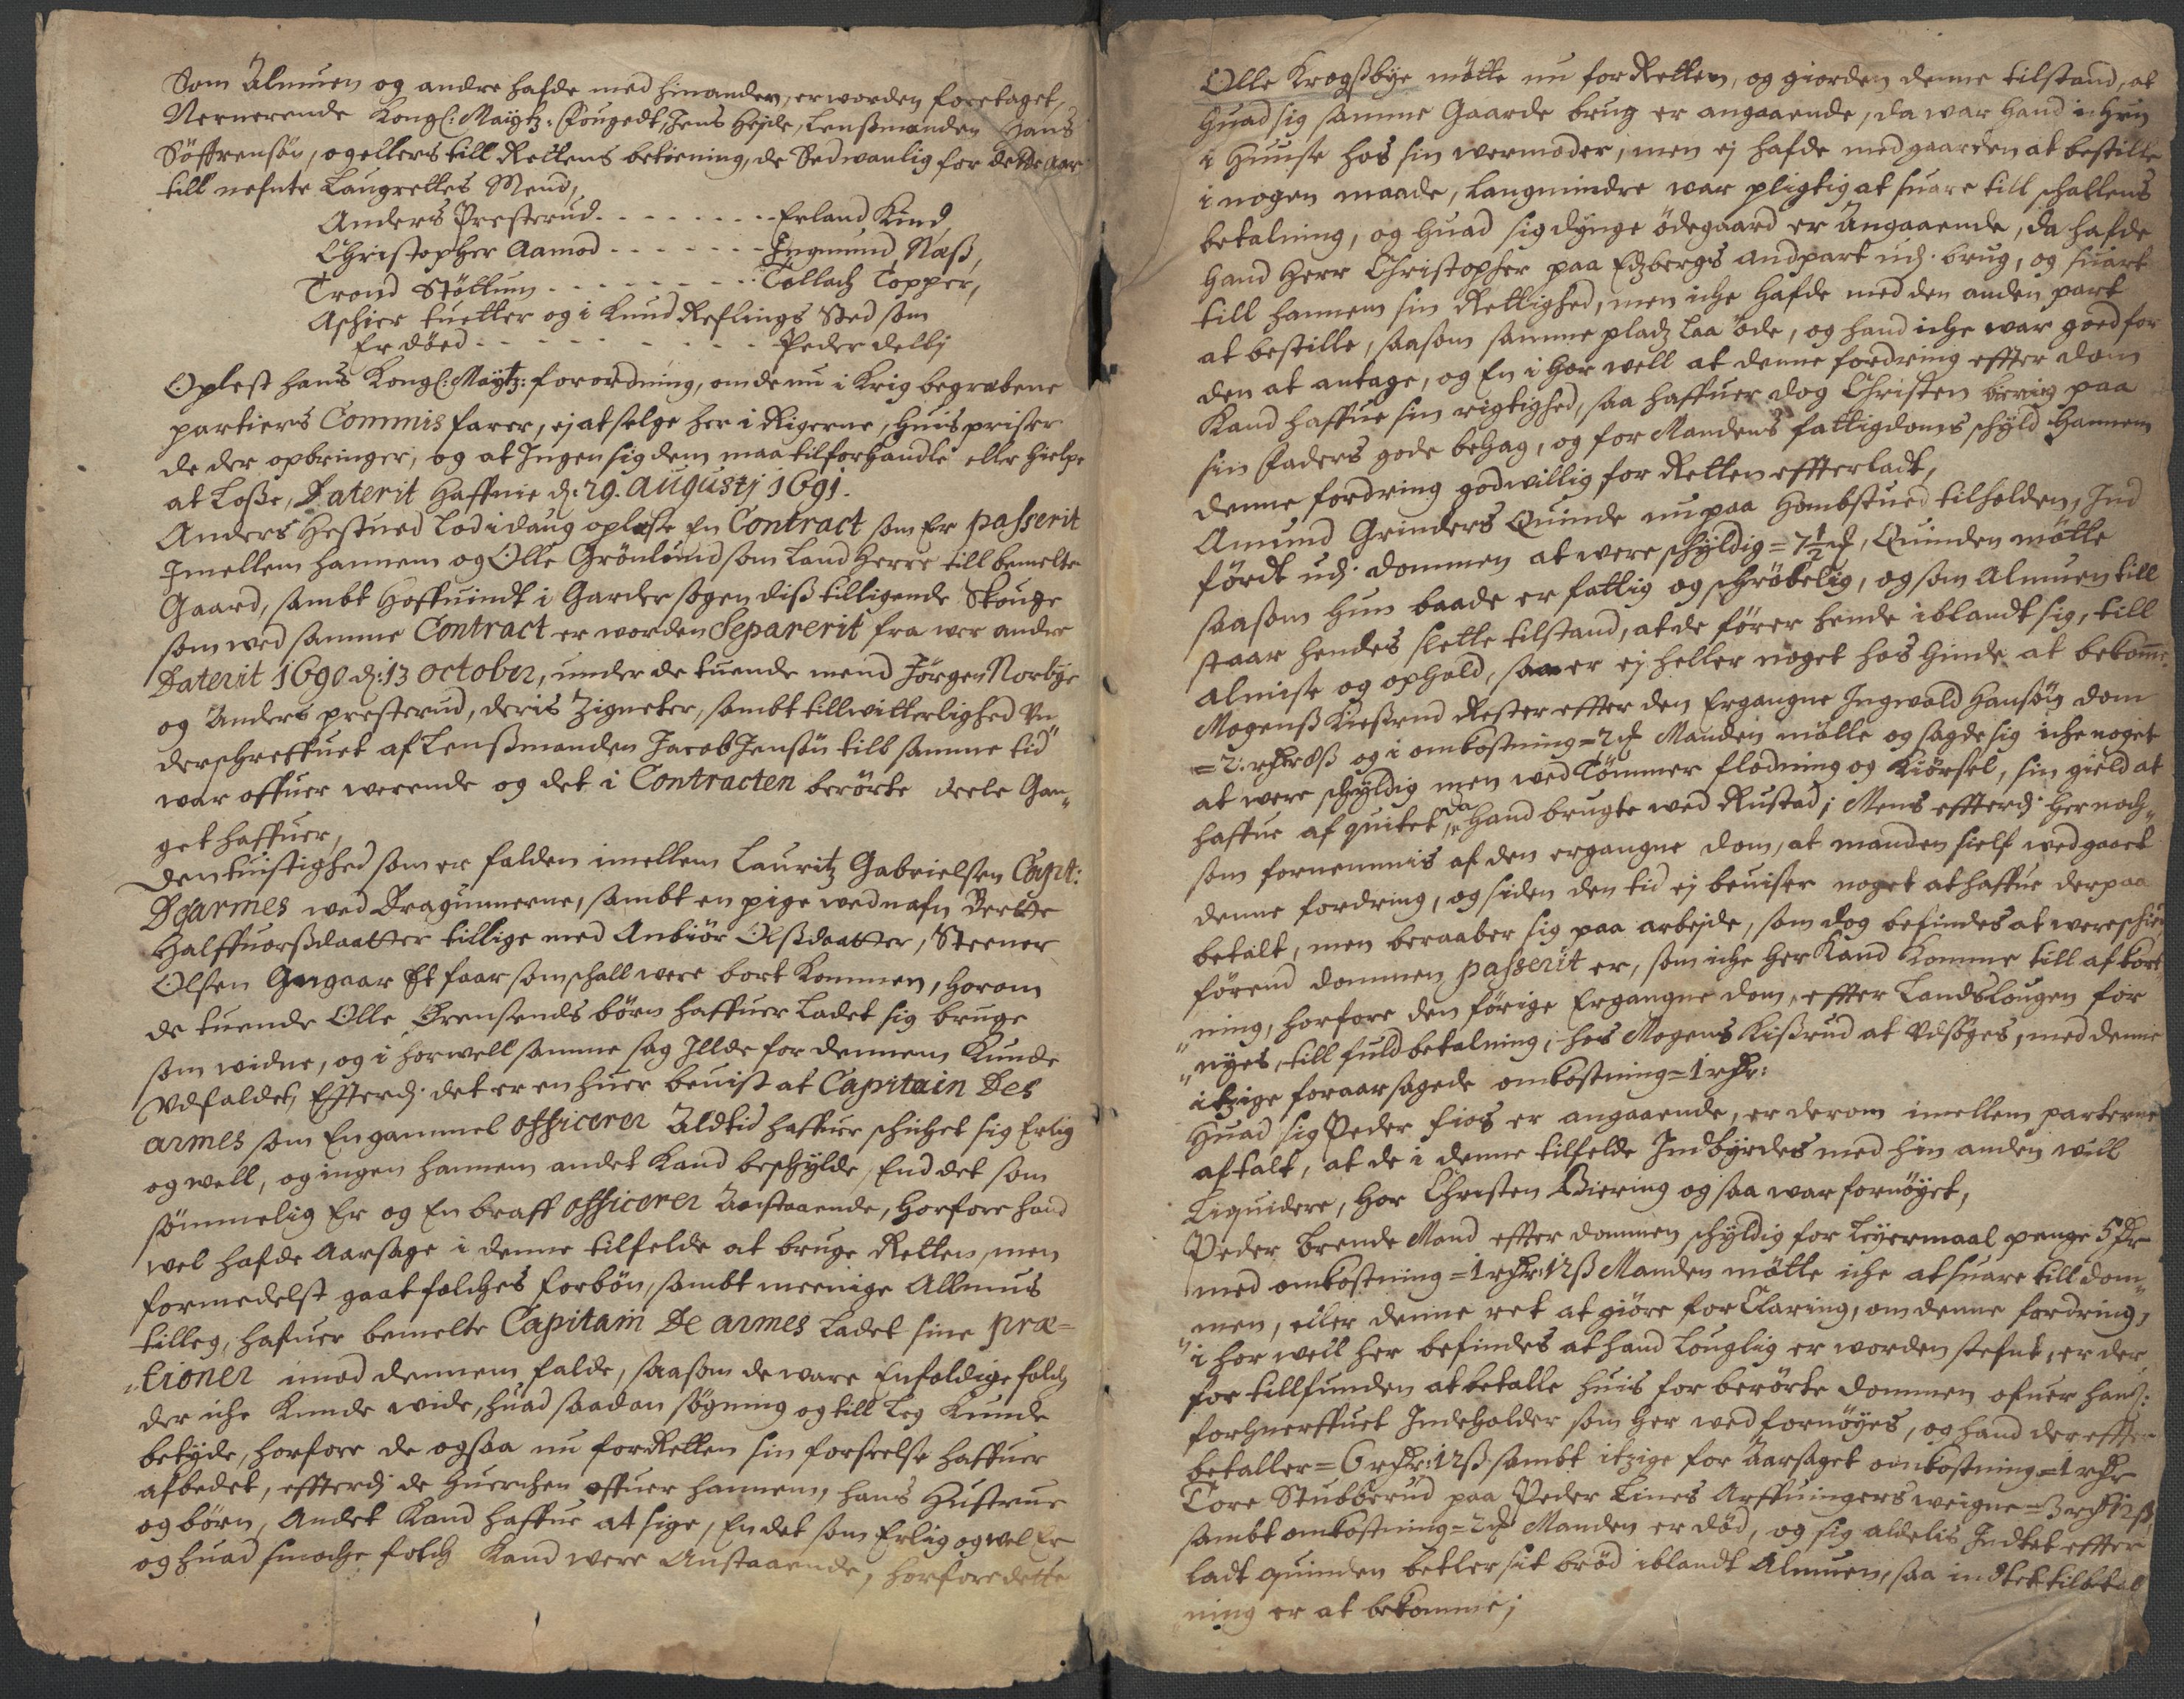 Som Almuen og andre hafde med hinanden, er worden foretaget,
Nerverende Kongl: Maigtz: Fougedt, Jens Heyde, Lenßmanden Hans
Söffrensön, og ellers till Rettens betiening, de Sedwanlig for dette aar
till nefnte Laugrettes Mend,
Anders Presterud - - - - - - - - Erland Kind
Christopher Aamod - - - - - - - Ingmund Næß,
Trond Stöttum - - - - - - - - Tollach Topper,
Aschier tuetter og i Knud Reflings Sted som
Er döed - - - - - - - - - - Peder delbj
Oplest hans Kongl: Maytz: forordning, om de nu i Krig begrebene
partiers Commis farer, ej at selge her i Rigerne, huis priser
de der opbringer, og at Ingen sig dem maa tilforhandle eller hielpe
at Loße, Daterit Haffnie d: 29. Augustj 1691.
Anders Hestued Lod i daug oplæse En Contract som Er passerit
Imellem hannem og Olle Grönlund som Land Herre till bemelte
Gaard, sambt Hoffuindt i Garder sogen diß tilligende Skouge
som wed samme Contract er worden Separerit fra wer andre
Daterit 1690 d: 13 October, under de tuende mend Jörgen Norbye
og Anders presterud, deris Zigneter, sambt till witterlighed Un
derschreffuet af Lenßmanden Jacob Jensön till samme tid
war offuer werende og det i Contracten berörte deele Gan„
get haffuer,
Den tuistighed som er falden imellem Lauritz Gabrielsen Capit:
Dgarmes wed Dragunnerne, sambt en pige wed nafn Berte
Halffuorßdaatter tillige med Anbiör Olßdaatter, Steener
Olsen Gangaar Et faar som schall were bort kommen, Horom
de tuende Olle Örensends börn haffuer Ladet sig bruge
som widne, og i horwell samme sag Illde for dennem Kunde
Udfaldet, Efterdj det er en huer beuist at Capitain Des
armes som En gammel officerer Altid haffuer schichet sig Erlig
og well, og ingen hannem andet Kand beschylde, End det som
sömmelig Er og En braff officerer Anstaaende, Horfore hand
wel hafde Aarsage i denne tilfelde at bruge Retten, men
formedelst gaat folches forbön, sambt meenige Allmus
tilleg, hafuer bemelte Capitain De armes Ladet sine præ=
„tioner imod dennem falde, saasom de ware Enfoldige folch
der iche Kunde wide, huad saadan sögning og till Leg Kunde
betyde, Horfore de ogsaa nu for Retten sin forseelse haffuer
afbedet, effterdj de huerchen offuer hannem, hans Hustrue
og börn, Andet Kand haffue at sige, End det som Erlig og wel Er
og huad smoche folch Kand were Anstaaende, horfore dette
Olle Krogßbye mötte nu for Retten, og giorden denne tilstand, at
huad sig samme Gaarde brug er angaaende, da war Hand i
i Huuse hos sin wermoder, men ej hafde med gaarden at bestille
i nogen maade, Langmindre war pligtig at suare till schattens
betalning, og huad sig dynge ödegaard er Angaaende, da hafde
Hand Herr Christopher paa Edzbergs andpart udj brug, og suart
till hannem sin Rettighed, men iche hafde med den anden part
at bestille, saasom samme pladz Laa Öde, og hand iche war goed for
den at antage, og En i Hor well at denne fordring effter dom
Kand haffue sin rigtighed, saa haffuer dog Christen biering paa
sin Faders gode behag, og for Mandens fattigdoms schyld Hannem
denne fordring godwillig for Retten effterladt,
Amund Grinders Quinde nu paa Hombstued tilholden, Ind
fördt udj dommen at were schyldig = 7½ , Quinden mötte
saasom Hun baade er fattig og schröbelig, og som Almuen till
staar hendes slette tilstand, at de förer hende iblandt sig, till
almise og ophold, saa er ej heller noget hos hinde at bekomme.
Mogenß Kießrud Rester effter den Ergangne Ingwold Hansön dom
= 2: 8ß og i omkostning = 2 Manden mötte og sagde sig iche noget
at were schyldig men wed Tömmer flödning og Kiörsel, sin gield at
haffue af quitet, da hand brugte wed Rustad; Mens effterdj her noch„
som fornemmis af den ergangne dom, at manden sielf wedgaaet
denne fordring, og siden den tid ej beuiser noget at haffue der paa
betalt, men beraaber sig paa arbejde, som dog befindes at were schie
förend dommen passerit er, som iche her Kand Komme till af kort„
„ning, horfore den förige Ergangne dom, effter Landslougen for
„nyes, till fuld betalning, hos Mogens Kißrud at Udsöges, med denne
itzige foraarsagede omkostning = 1
Huad sig Peder fios er angaaende, er derom imellem parterne
aftalt, at de i denne tilfelde Indbyrdes med hin anden will
Liquidere, hor Christen Biering og saa war fornöyet,
Peder Brende Mand effter dommen schyldig for Leyermaal penge 5
med omkostning = 1 12ß Manden mötte iche at suare till dom„
„men, eller denne ret at giöre forClaring, om denne fordring,
„i hor well her befindes at hand Louglig er worden stefnt, er der
for tillfunden at betalle huis for berörte dommen ofuer hans:
forhuerffuet Indeholder som her wed fornöyes, og hand der effter
betaller = 6 12ß sambt itzige for Aarsaget omkostning = 1
Tore Stubberud paa Peder Lines Arffuingers weigne = 3 12ß
sambt omkostning = 2 Manden er död, og sig aldelis Indtet effter
ladt quinden betler sit bröd iblandt Almuen, saa indtet till betal
ning er at bekomme;